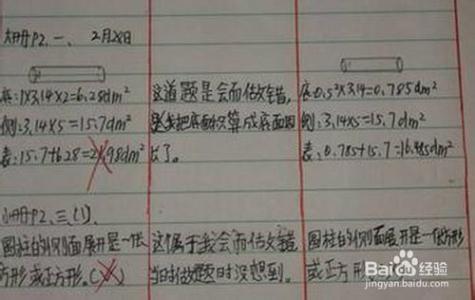 大册P2、一、 2月28日
底:1×3.14×2=6.28dm²
侧:3.14×5=15.7dm²
表:15.7+6.28=21.98dm²
这道题是会而做错,
是我把底面积算成底面周
长了。
底:0.5²×3.14=0.785dm²
侧:3.14×5=15.7dm²
表:0.785+15.7=16.485dm²
小册P2、三、(1)、
圆柱的侧面展开是一个长
方形或正方形。(✓)
这个属于我会而做错
当时做题时没想到。
圆柱的侧面展开是一个长方形
或正方形
Baidu 经验
jingyan.baidu.com